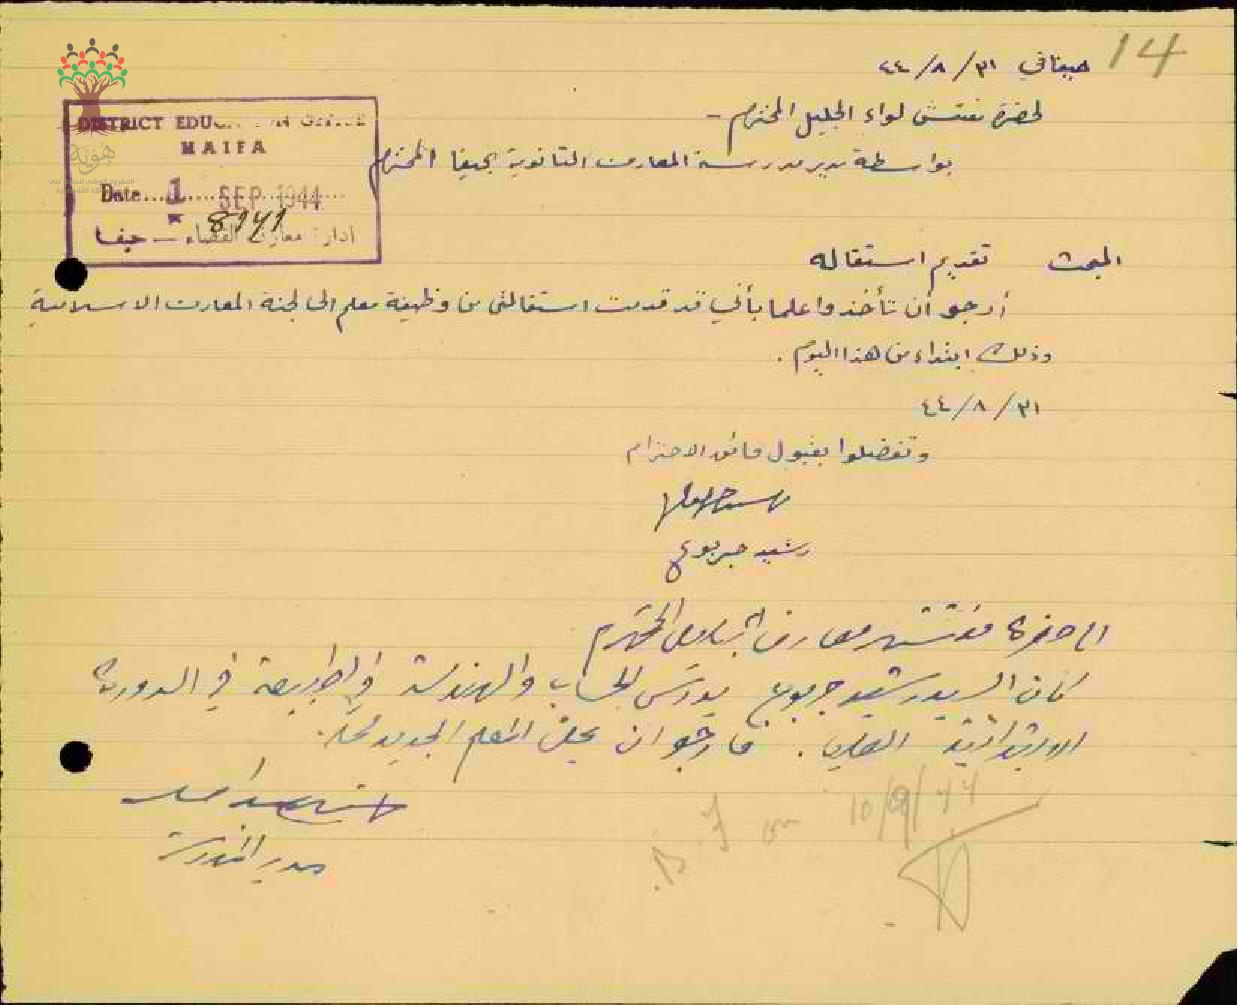 14
حيفا في ٣١/٨/٤٤
لحضرة مفتش لواء الجليل المحترم -
بواسطة مدير مدرسة المعارف الثانوية بحيفا المحترم
DISTRICT EDUCATION OFFICE
HAIFA
Date 1 SEP 1944
8141
ادارة معارف القضاء — حيفا
هوية
المبحث تقديم استقاله
أرجو أن تأخذوا علما بأني قد قدمت استقالتي من وظيفة معلم الى لجنة المعارف الاسلامية
وذلك ابتداء من هذا اليوم .
٣١/٨/٤٤
وتفضلوا بقبول فائق الاحترام
رشيد جربوع
الى حضرة مفتش معارف اللواء المحترم
كان السيد رشيد جربوع يدرس الحساب والهندسة والطبيعة في الدورة
الابتدائية العليا . فارجو ان يحل المعلم الجديد محله .
مدير المدرسة
B. F on 10/9/44